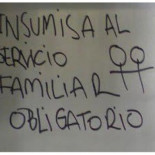 INSUMISA AL
SERVICIO
FAMILIAR
OBLIGATORIO